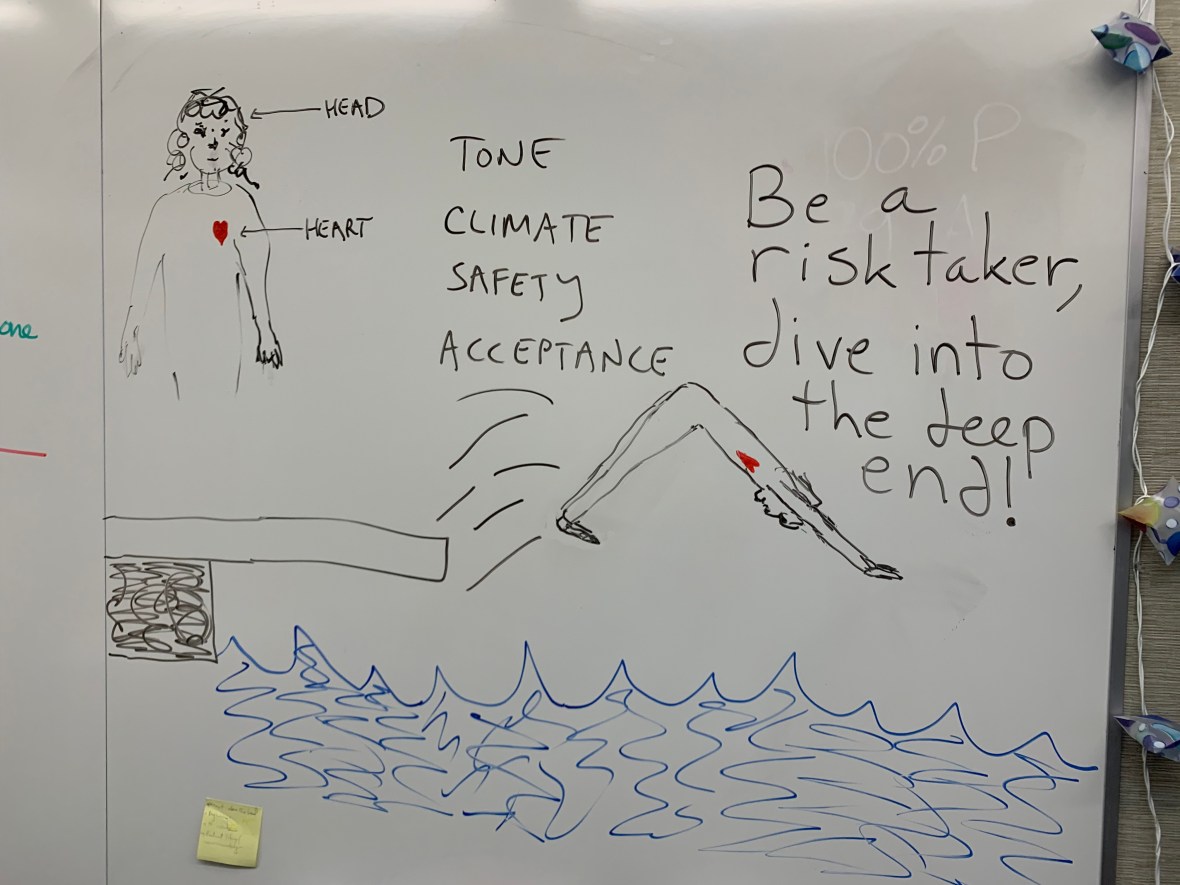 HEAD
HEART
TONE
CLIMATE
SAFETY
ACCEPTANCE
100% P
Be a
risk taker,
dive into
the deep
end!
one